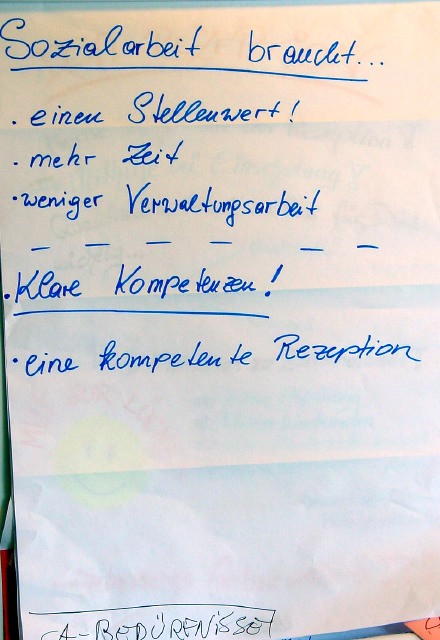 Sozialarbeit braucht...
· einen Stellenwert!
· mehr Zeit
· weniger Verwaltungsarbeit
– – – – – –
· Klare Kompetenzen!
· eine kompetente Rezeption